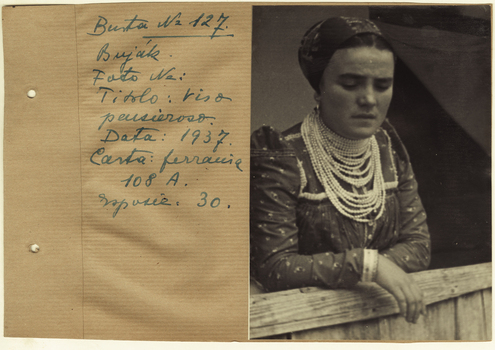 Busta No 127.
Buják.
Foto No:
Titolo: Viso
pensieroso.
Data: 1937.
Carta: ferrania
108 A.
Esposiz: 30.